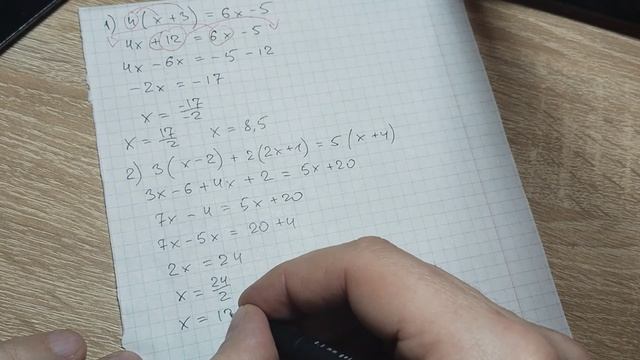 1) 4(x+3) = 6x-5
4x+12 = 6x-5
4x-6x = -5-12
-2x = -17
x = -17/-2
x = 17/2 x = 8,5
2) 3(x-2)+2(2x+1) = 5(x+4)
3x-6+4x+2 = 5x+20
7x-4 = 5x+20
7x-5x = 20+4
2x = 24
x = 24/2
x = 12